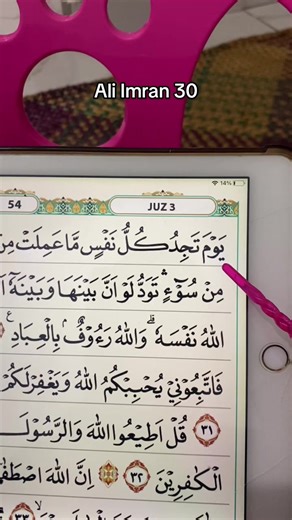 Ali Imran 30
14%
54
JUZ 3
يَوْمَ تَجِدُ كُلُّ نَفْسٍ مَّا عَمِلَتْ مِنْ
مِنْ سُوْۤءٍ ۛ تَوَدُّ لَوْ اَنَّ بَيْنَهَا وَبَيْنَهٗٓ
اللّٰهُ نَفْسَهٗ ۗ وَاللّٰهُ رَءُوْفٌۢ بِالْعِبَادِ ࣖ
فَاتَّبِعُوْنِيْ يُحْبِبْكُمُ اللّٰهُ وَيَغْفِرْ لَكُمْ
٣١ قُلْ اَطِيْعُوا اللّٰهَ وَالرَّسُوْلَ
الْكٰفِرِيْنَ ٣٢ اِنَّ اللّٰهَ اصْطَفٰٓى
٣٣